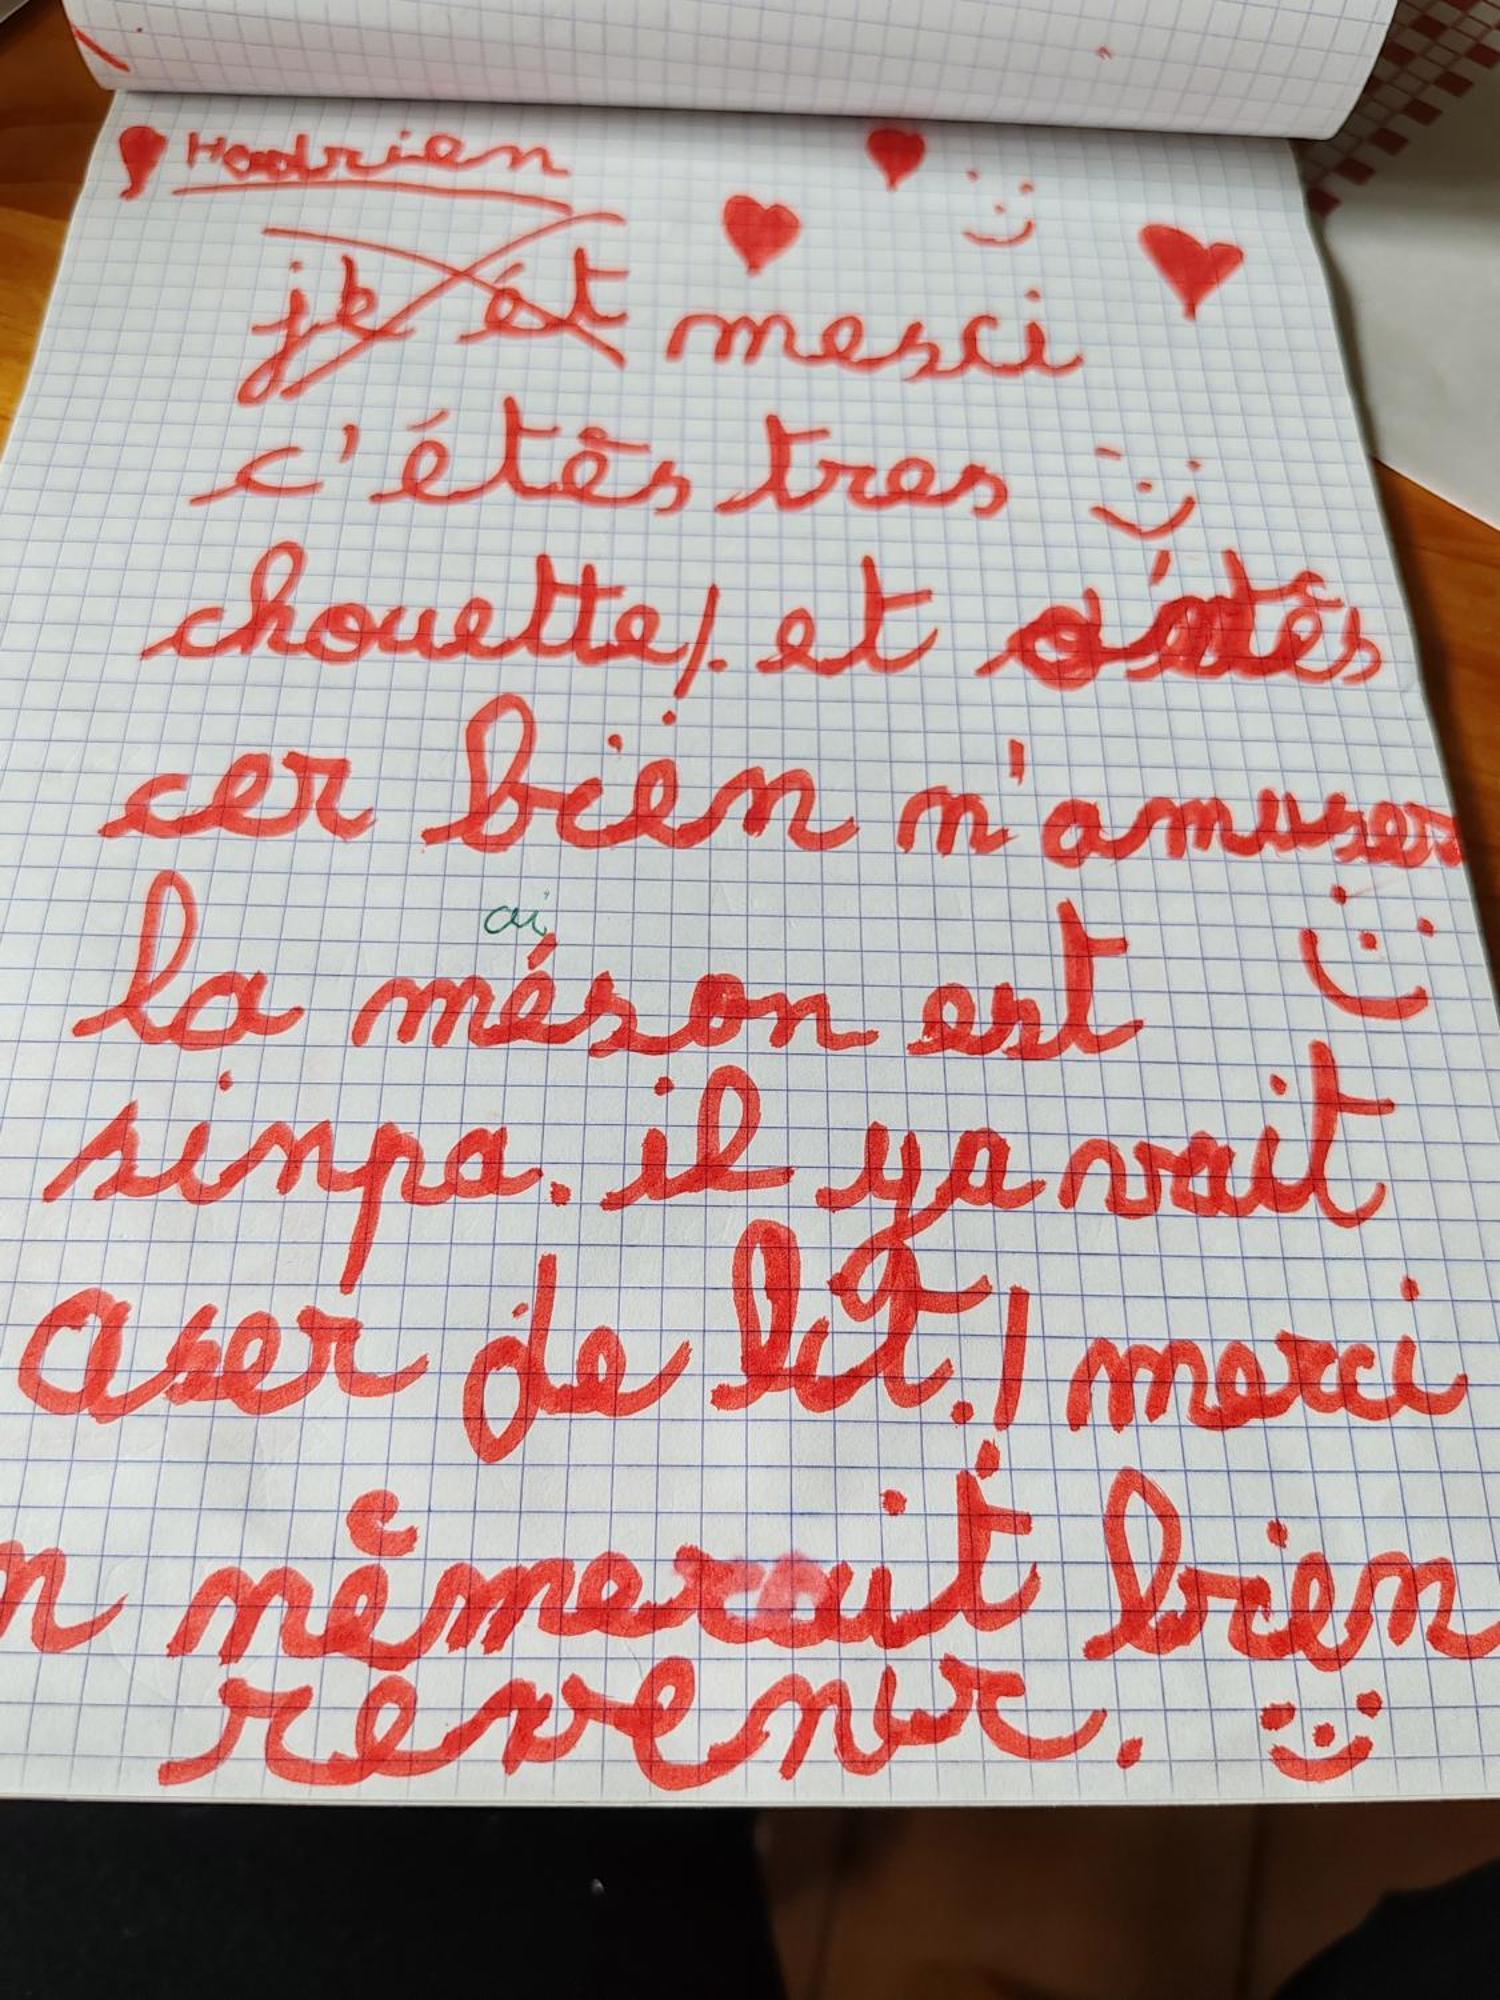 Hadrien
je ét merci
c'étês tres
chouette! et
cer bien m'amuser
ai
la méson est
sinpa. il ya vait
aser de lit.! merci
n nêmerait bien
revenir.